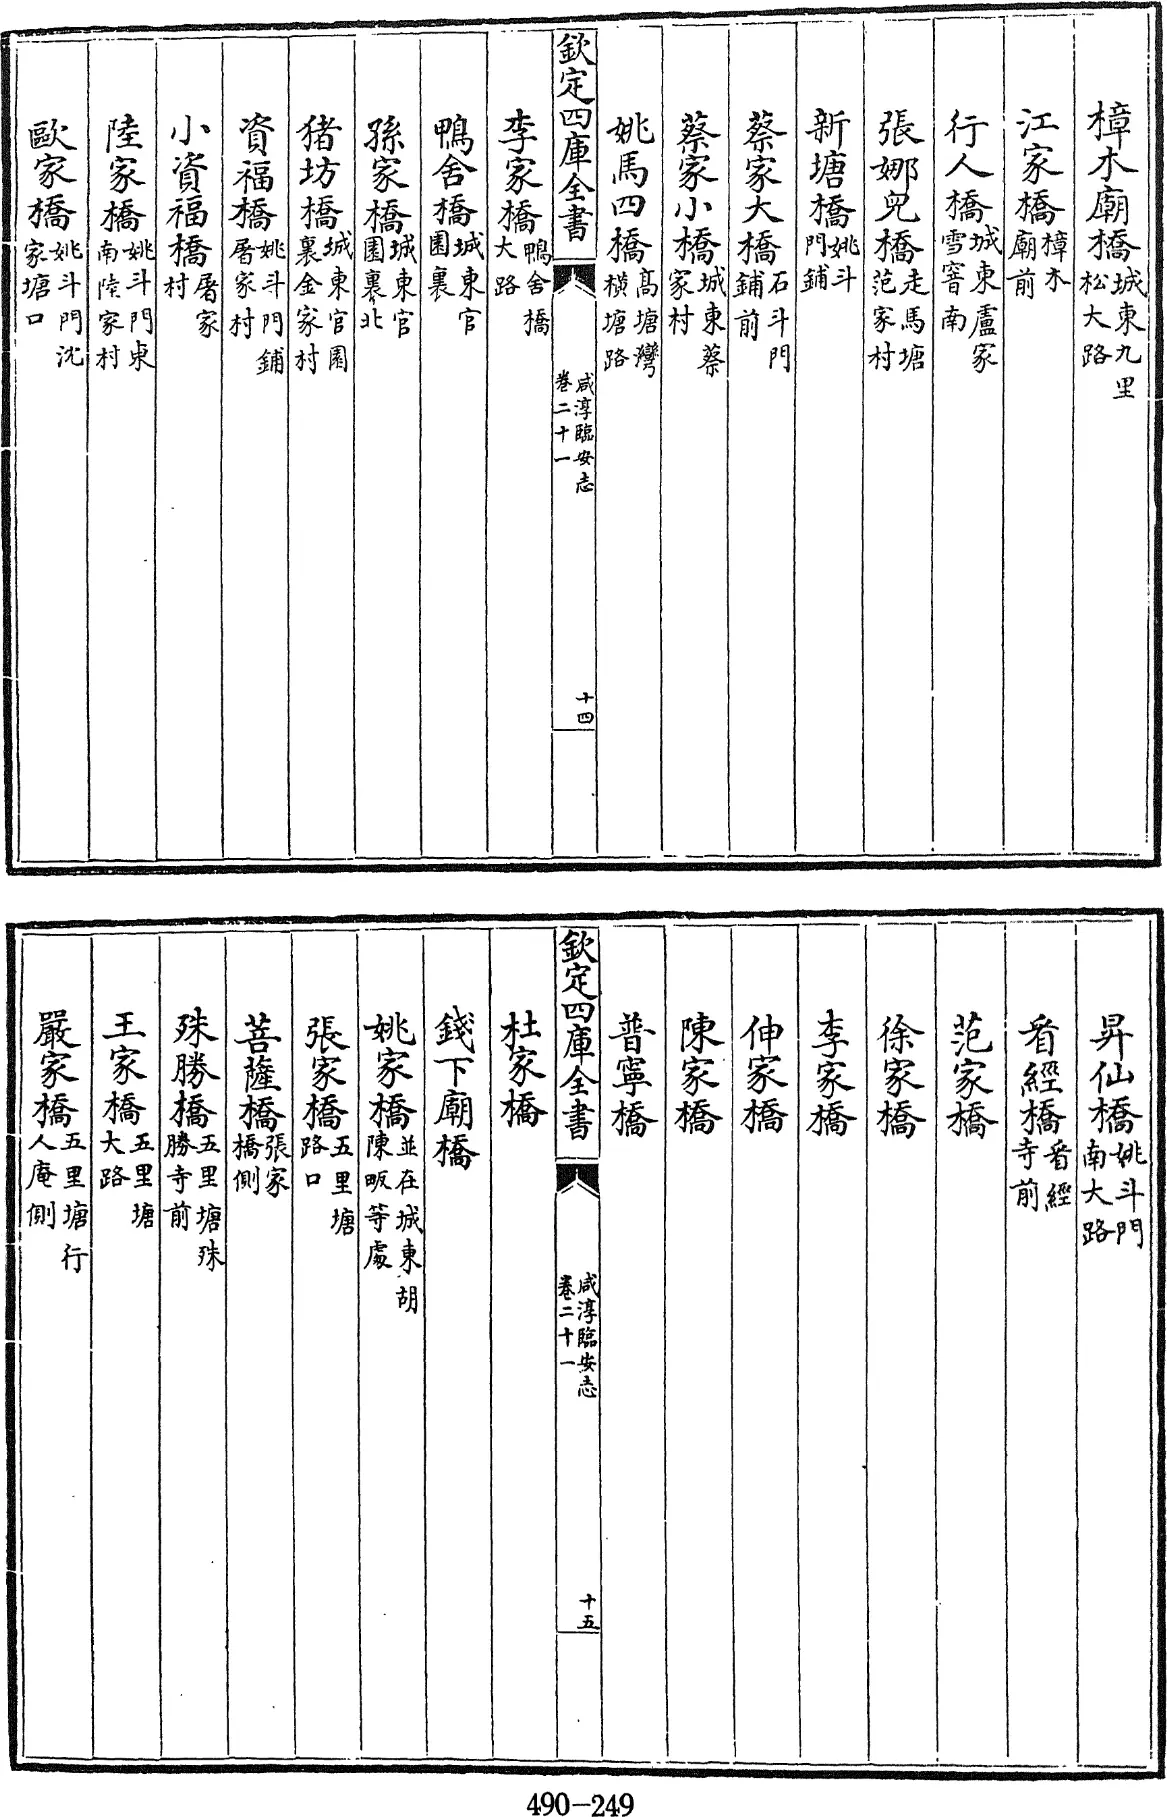 樟木廟橋城東九里松大路
江家橋樟木廟前
行人橋城東盧家雪窖南
張娜兒橋走馬塘范家村
新塘橋姚斗門鋪
蔡家大橋石斗門鋪前
蔡家小橋城東蔡家村
姚馬四橋髙塘灣橫塘路
欽定四庫全書
咸淳臨安志
卷二十一
十四
李家橋鴨舍橋大路
鴨舍橋城東官園裏
孫家橋城東官園裏北
猪坊橋城東官園裏金家村
資福橋姚斗門鋪屠家村
小資福橋屠家村
陸家橋姚斗門東南陸家村
歐家橋姚斗門沈家塘口
昇仙橋姚斗門南大路
看經橋看經寺前
范家橋
徐家橋
李家橋
伸家橋
陳家橋
普寧橋
欽定四庫全書
咸淳臨安志
卷二十一
十五
杜家橋
錢下廟橋
姚家橋並在城東胡陳畈等處
張家橋五里塘路口
菩薩橋張家橋側
殊勝橋五里塘殊勝寺前
王家橋五里塘大路
嚴家橋五里塘行人庵側
490-249